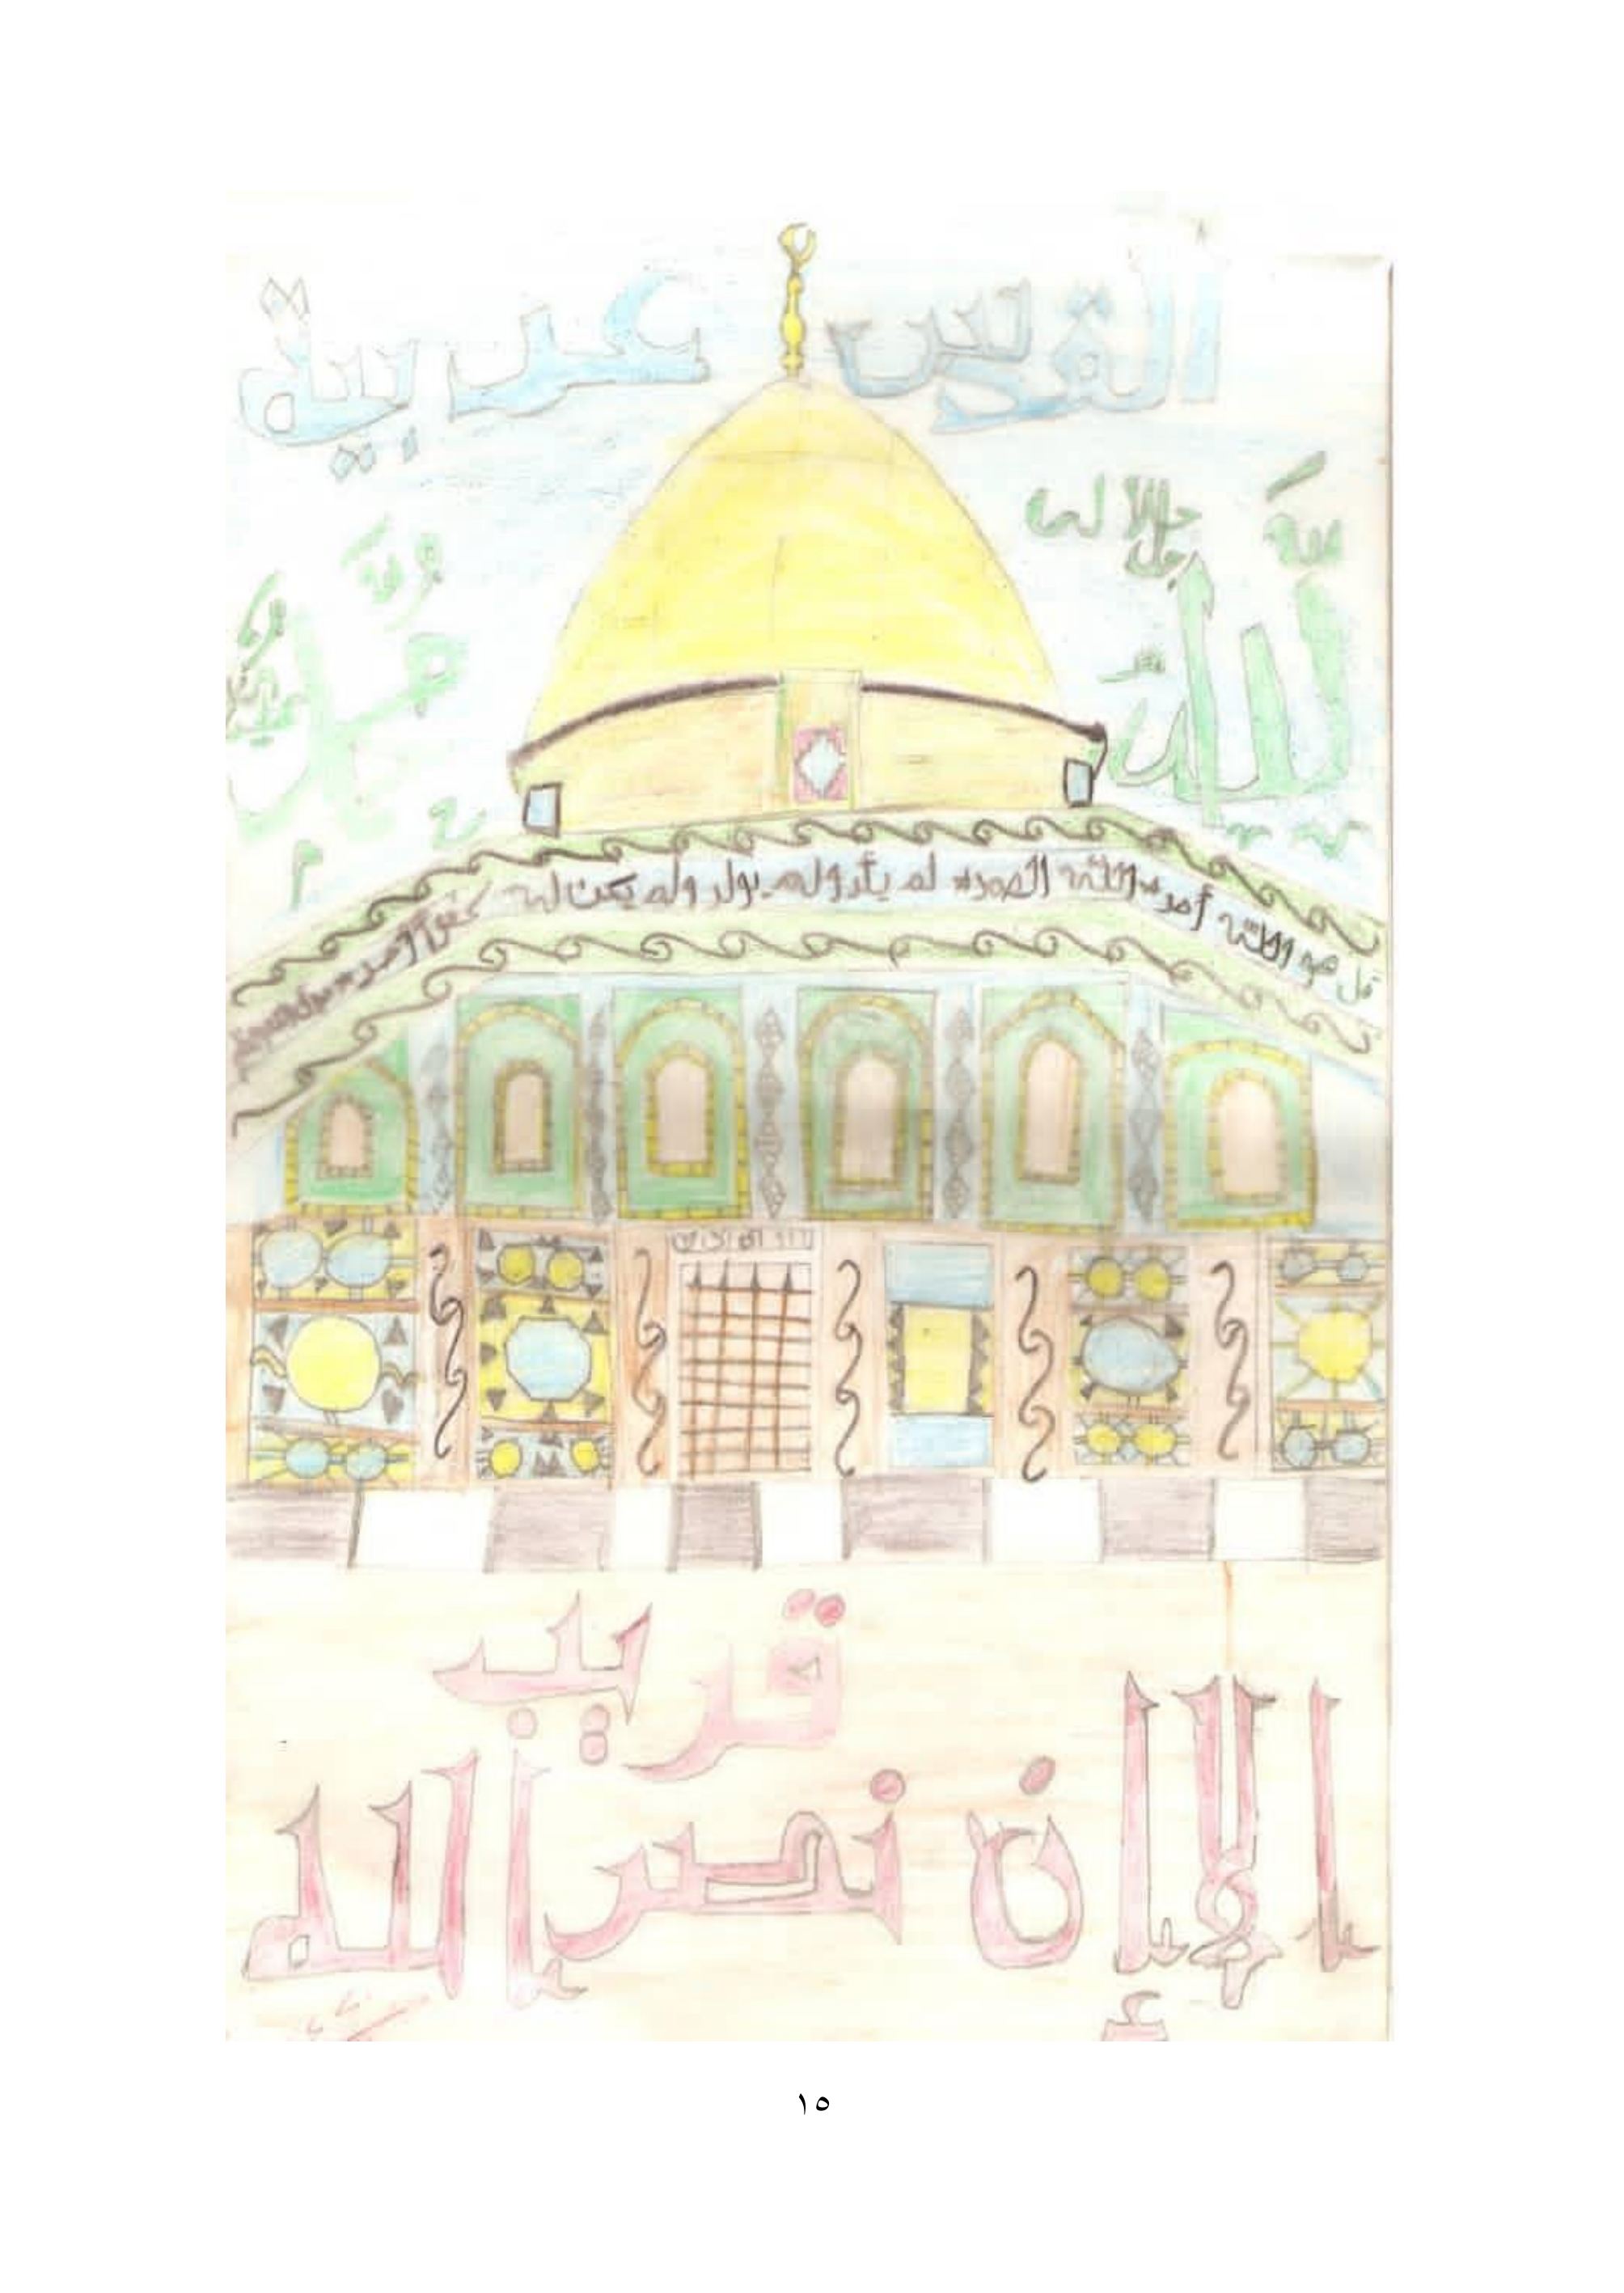 القدس عربية
الله
جل جلاله
محمد
قل هو الله أحد * الله الصمد * لم يلد ولم يولد ولم يكن له كفوا أحد *
ألا إن نصر الله
قريب
١٥